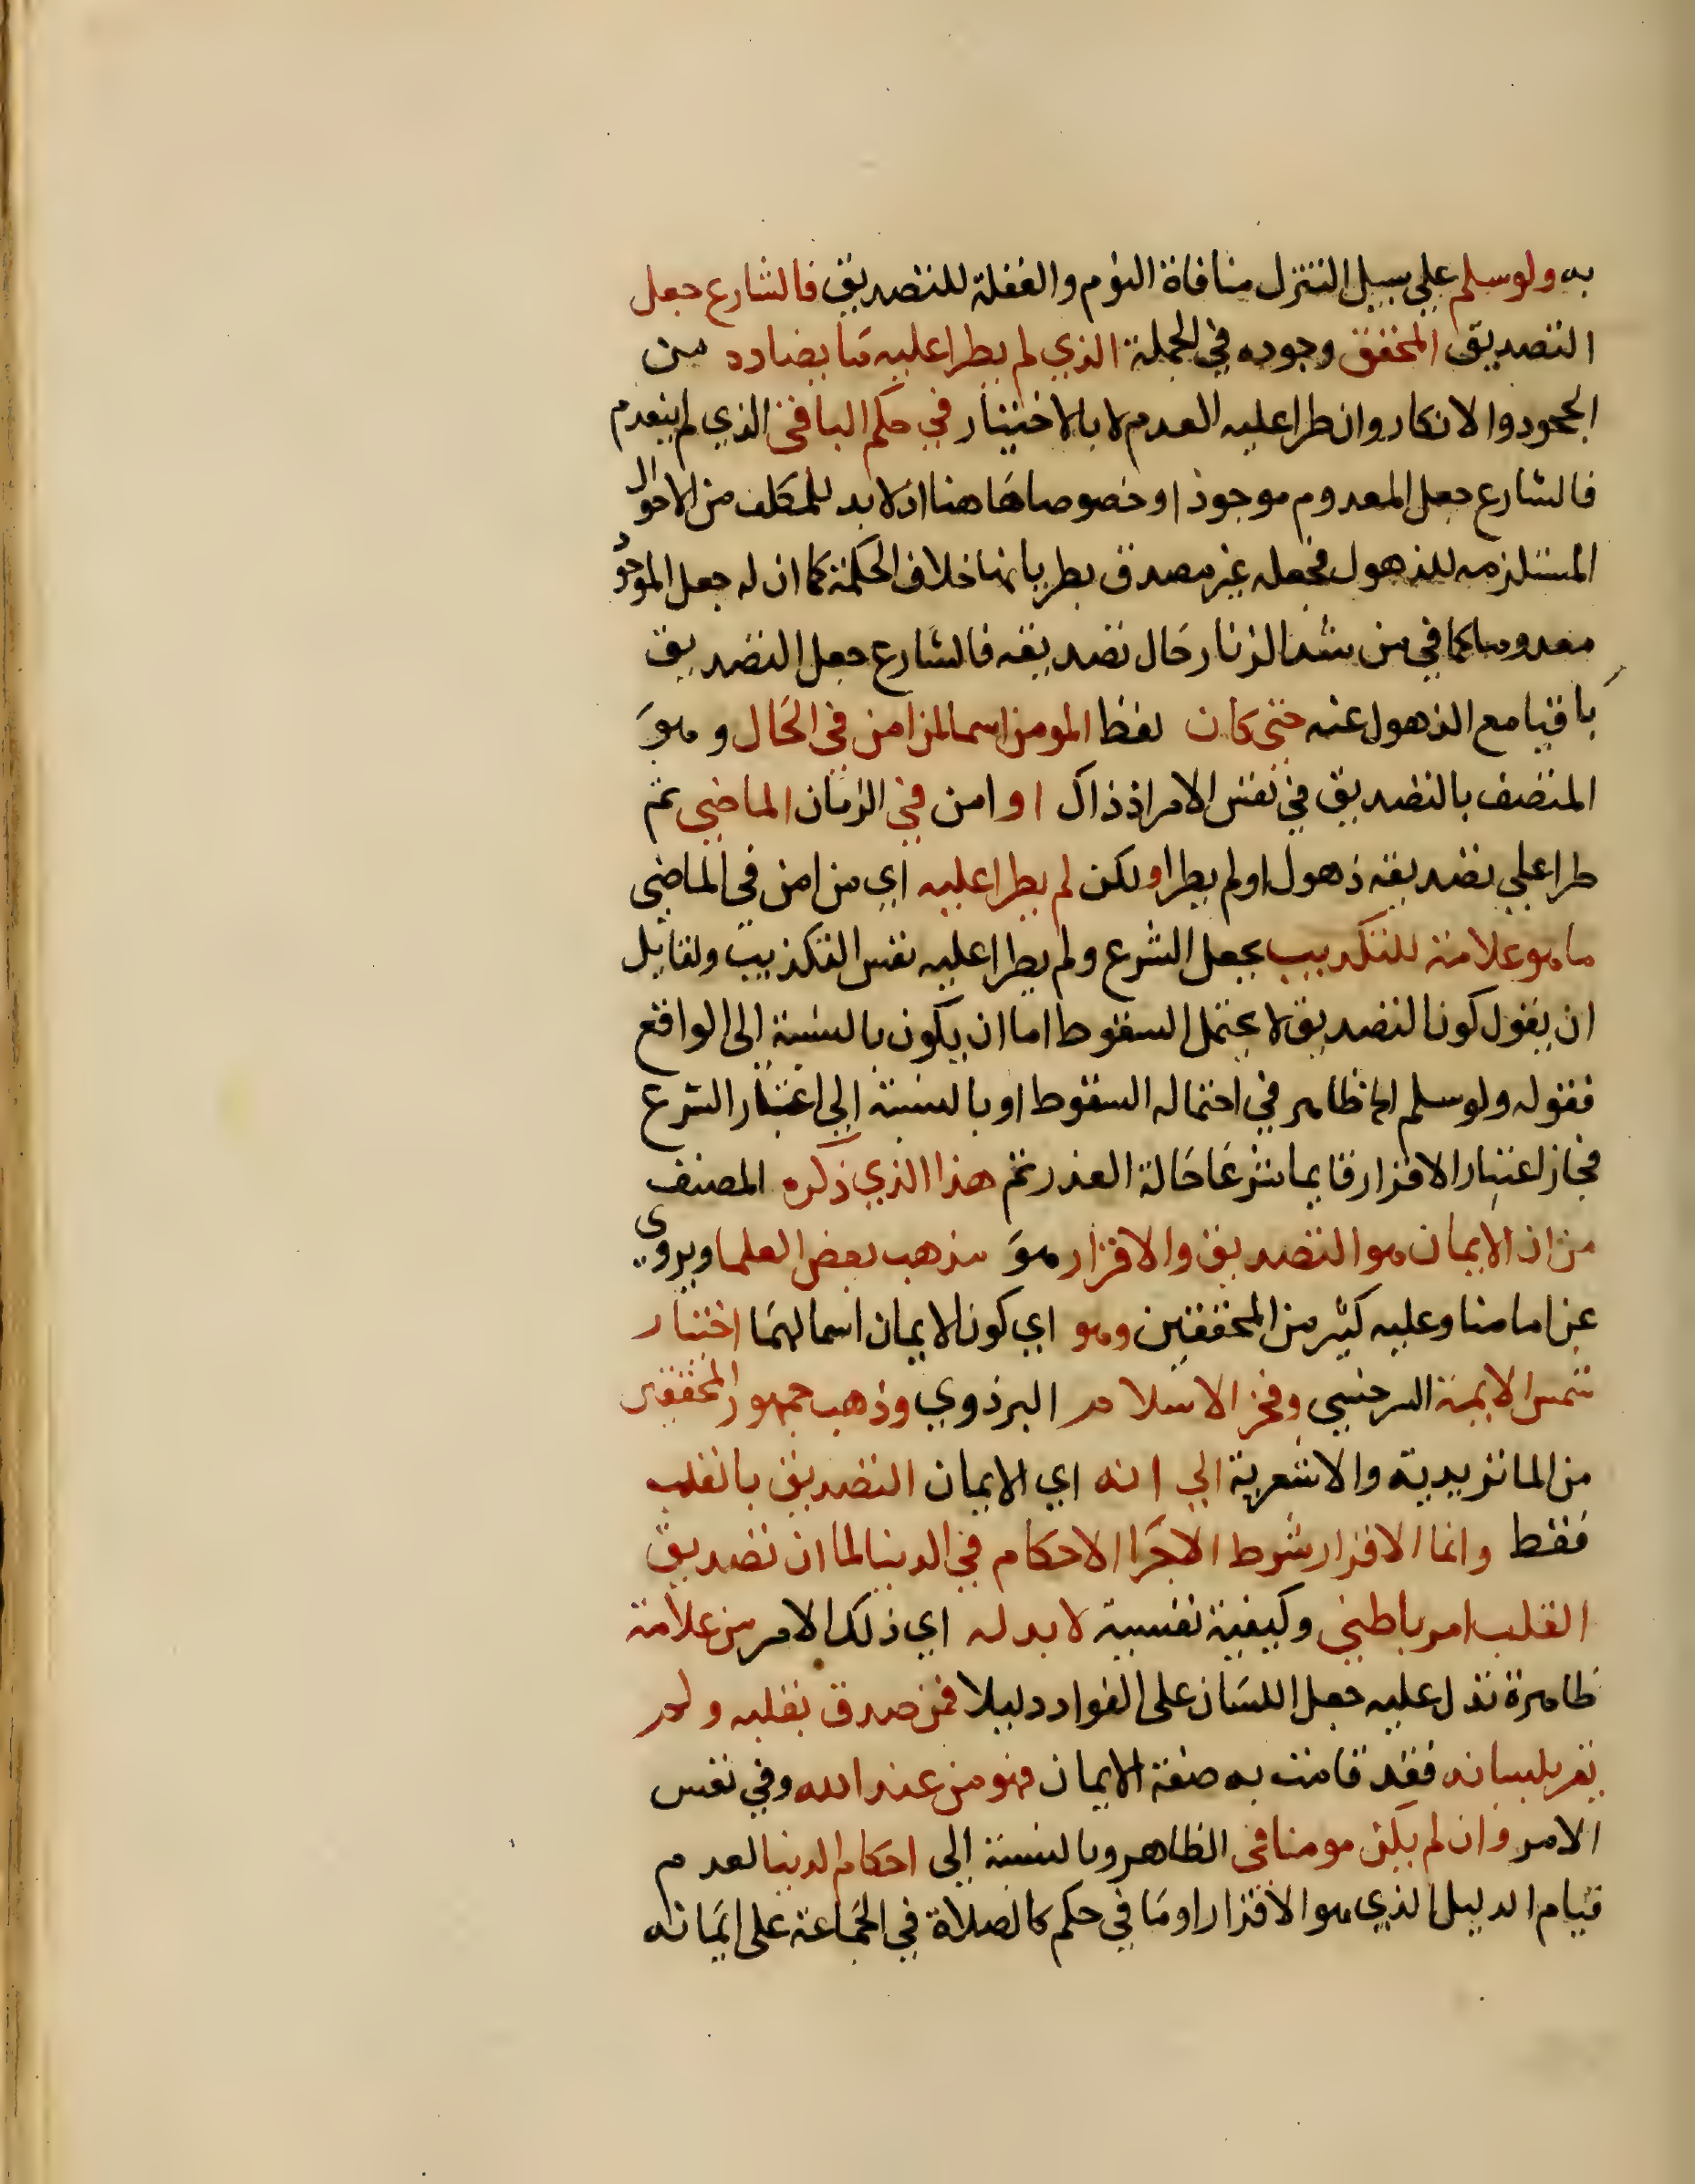 به ولو سلم علي سبيل التنزل منافاة النوم والغفلة للتصديق فالشارع جعل
التصديق المحقق وجوده في الجملة الذي لم يطرا عليه ما يضادد من
الجحود والانكار وان طرا عليه العدم لا بالاختيار في حكم الباقي الذي لم ينعدم
فالشارع جعل المعدوم موجودا وخصوصا هاهنا اذ لا بد للمكلف من الاحوال
المستلزمه للذهول فجعله غير مصدق بطريانها خلاف الحكمة كما ان له جعل الموجود
معدوما كما في من شد الزنار حال تصديقه فالشارع جعل التصديق
باقيا مع الذهول عنه حتي كان لفظ المومن اسما لمن امن في الحال وهو
المتصف بالتصديق في نفس الامر اذ ذاك او امن في الزمان الماضي ثم
طرا علي تصديقه ذهول او لم يطرا ولكن لم يطرا عليه اي من امن في الماضي
ما هو علامة للتكذيب بجعل الشرع ولم يطرا عليه نفس التكذيب ولقايل
ان يقول كون التصديق لا يحتمل السقوط اما ان يكون بالنسبة الى الواقع
فقوله ولو سلم الخ ظاهر في احتماله السقوط او بالنسبة الي اعتبار الشرع
فجاز اعتبار الاقرار قايما شرعا حالة العذر ثم هذا الذي ذكره المصنف
من ان الايمان هو التصديق والاقرار هو مذهب بعض العلما ويروى
عن امامنا وعليه كثير من المحققين وهو اي كون الايمان اسما لهما اختيار
شمس الايمة السرخسي وفخر الاسلام البزدوي وذهب جمهور المحققين
من الماتريدية والاشعرية الي انه اي الايمان التصديق بالقلب
فقط وانما الاقرار شرط لاجرا الاحكام في الدنيا لما ان تصديق
القلب امر باطني وكيفية نفسية لا بد له اي ذلك الامر من علامة
ظاهرة تدل عليه جعل اللسان على الفواد دليلا فمن صدق بقلبه ولم
يقر بلسانه فقد قامت به صفة الايمان فهو من عند الله وفي نفس
الامر وان لم يكن مومنا في الظاهر وبالنسبة إلى احكام الدنيا لعدم
قيام الدليل الذي هو الاقرار او ما في حكم كالصلاة في الجماعة على ايمانه